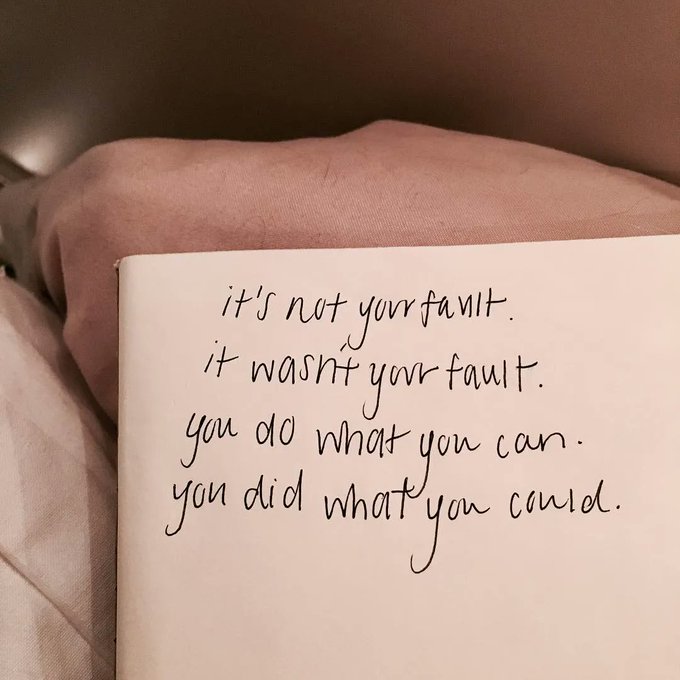 it's not your fault.
it wasn't your fault.
you do what you can.
you did what you could.